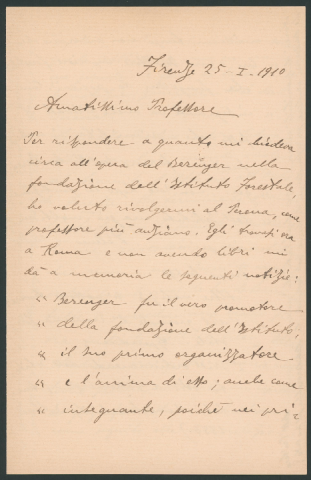 Firenze 25-I-1910
Amatissimo Professore
Per rispondere a quanto mi chiedeva
circa all'opera del Berenger nella
fondazione dell'Istituto Forestale,
ho voluto rivolgermi al Perona, come
professore più anziano. Egli trovasi ora
a Roma e non avendo libri mi
dà a memoria le seguenti notizie:
" Berenger fu il vero promotore
" della fondazione dell'Istituto,
" il suo primo organizzatore
" e l'anima di esso; anche come
" insegnante, poichè nei pri=